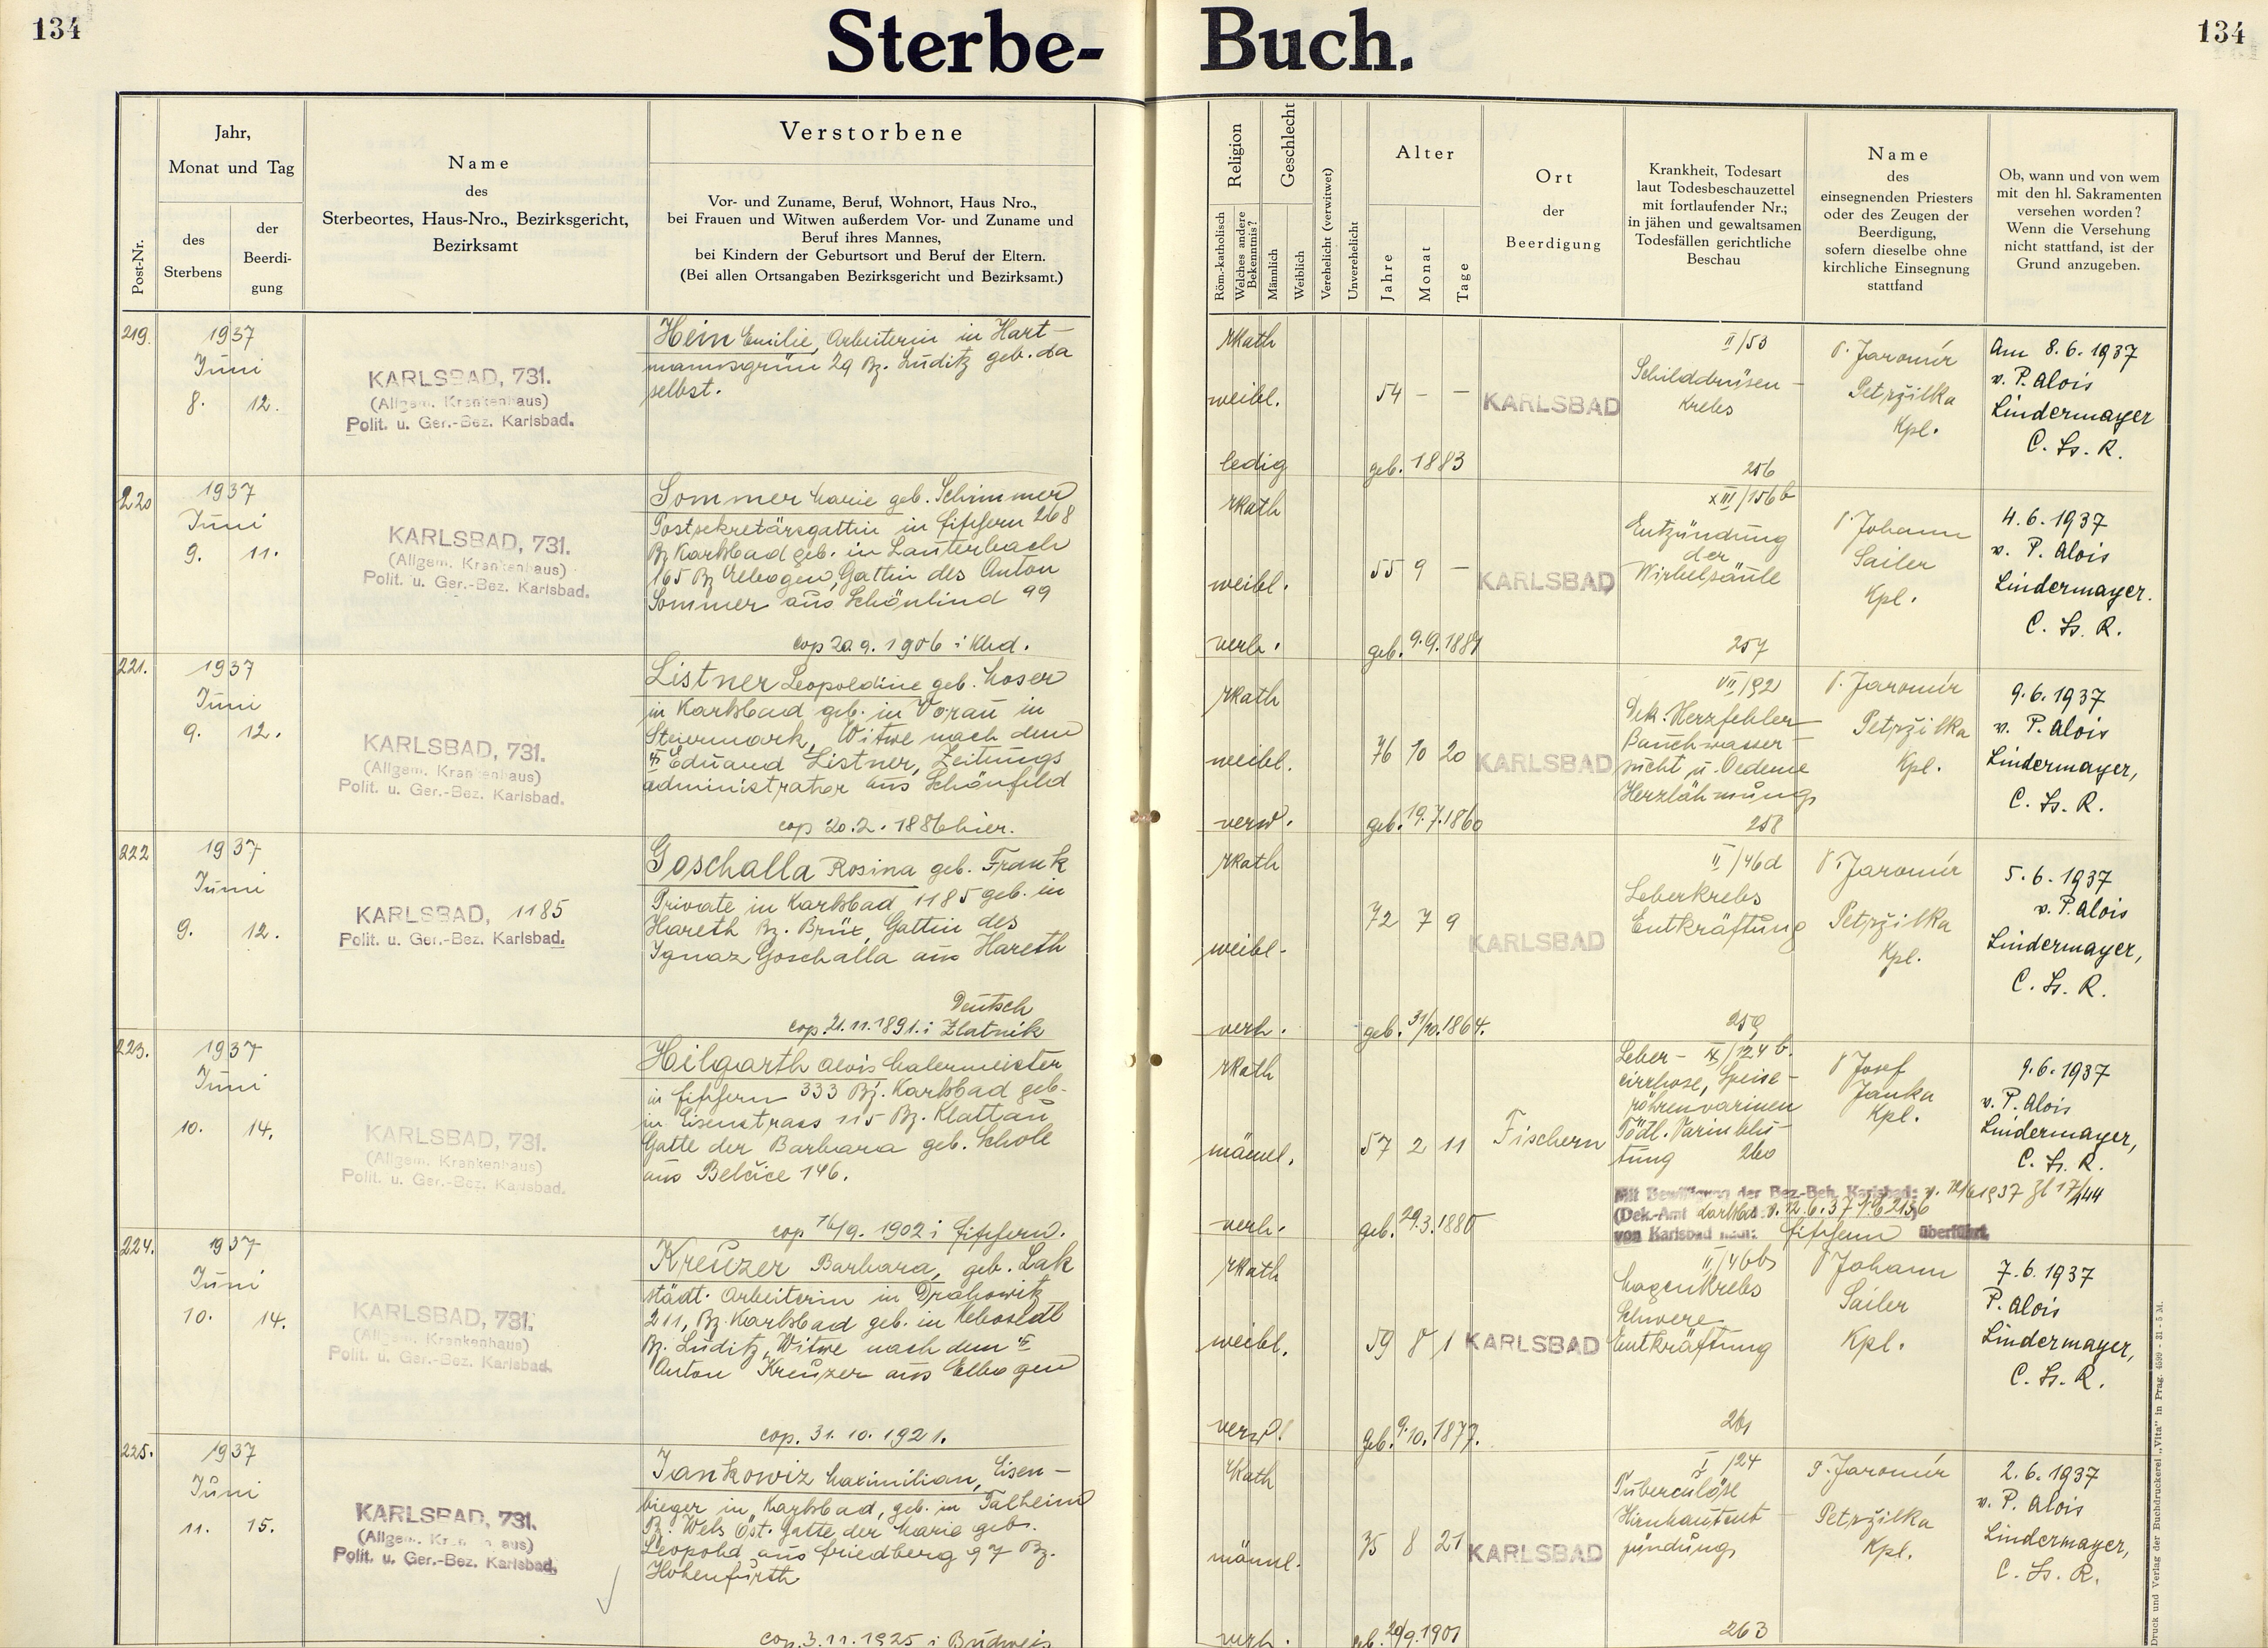 134
Sterbe- Buch.
134
Post-Nr.
Jahr,
Monat und Tag
des
Sterbens
der
Beerdi-
gung
Name
des
Sterbeortes, Haus-Nro., Bezirksgericht,
Bezirksamt
Verstorbene
Vor- und Zuname, Beruf, Wohnort, Haus Nro.,
bei Frauen und Witwen außerdem Vor- und Zuname und
Beruf ihres Mannes,
bei Kindern der Geburtsort und Beruf der Eltern.
(Bei allen Ortsangaben Bezirksgericht und Bezirksamt.)
Religion
Röm.-katholisch
Welches andere
Bekenntnis?
Geschlecht
Männlich
Weiblich
Verehelicht (verwitwet)
Unverehelicht
Alter
Jahre
Monat
Tage
Ort
der
Beerdigung
Krankheit, Todesart
laut Todesbeschauzettel
mit fortlaufender Nr.;
in jähen und gewaltsamen
Todesfällen gerichtliche
Beschau
Name
des
einsegnenden Priesters
oder des Zeugen der
Beerdigung,
sofern dieselbe ohne
kirchliche Einsegnung
stattfand
Ob, wann und von wem
mit den hl. Sakramenten
versehen worden?
Wenn die Versehung
nicht stattfand, ist der
Grund anzugeben.
219.
1937
Juni
8. 12.
KARLSBAD, 731.
(Allgem. Krankenhaus)
Polit. u. Ger.-Bez. Karlsbad.
Hein Emilie, Arbeiterin in Hart-
mannsgrün 29 Bz. Luditz geb. da
selbst.
rkath
weibl.
ledig
54 - -
geb. 1883
KARLSBAD
II/53
Schilddrüsen-
krebs
256
P. Jaromír
Petpžilka
Kpl.
Am 8.6.1937
v. P. Alois
Lindermayer
C. Ss. R.
220
1937
Juni
9. 11.
KARLSBAD, 731.
(Allgem. Krankenhaus)
Polit. u. Ger.-Bez. Karlsbad.
Sommer Marie geb. Schimmer
Postsekretärsgattin in Fischern 268
Bz Karlsbad geb. in Lauterbach
165 Bz Elbogen, Gattin des Anton
Sommer aus Schönlind 99
cop 20.9.1906 i Kbd.
rkath
weibl.
verh.
55 9 -
geb. 9.9.1881
KARLSBAD
XIII/156b
Entzündung
der
Wirbelsäule
257
P Johann
Sailer
Kpl.
4.6.1937
v. P. Alois
Lindermayer.
C. Ss. R.
221.
1937
Juni
9. 12.
KARLSBAD, 731.
(Allgem. Krankenhaus)
Polit. u. Ger.-Bez. Karlsbad.
Listner Leopoldine geb. Moser
in Karlsbad geb. in Vorau in
Steiermark, Witwe nach dem
Eduard Listner, Zeitungs
administrator aus Schönfeld
cop 20.2.1886 hier.
rkath
weibl.
verw.
76 10 20
geb. 19.7.1860
KARLSBAD
VII/92
Dek. Herzfehler
Bauchwasser-
sucht u. Oedeme
Herzlähmung
258
P. Jaromír
Petpžilka
Kpl.
9.6.1937
v. P. Alois
Lindermayer,
C. Ss. R.
222
1937
Juni
9. 12.
KARLSBAD, 1185
Polit. u. Ger.-Bez. Karlsbad.
Goschalla Rosina geb. Frank
Private in Karlsbad 1185 geb. in
Hareth Bz. Brüx, Gattin des
Ignaz Goschalla aus Hareth
Deutsch
cop. 21.11.1891. i Zlatnik
rkath
weibl.
verh.
72 7 9
geb. 31/10.1864.
KARLSBAD
II/46d
Leberkrebs
Entkräftung
259
P. Jaromír
Petpžilka
Kpl.
5.6.1937
v. P. Alois
Lindermayer,
C. Ss. R.
223.
1937
Juni
10. 14.
KARLSBAD, 731.
(Allgem. Krankenhaus)
Polit. u. Ger.-Bez. Karlsbad.
Hilgarth Alois Malermeister
in Fischern 333 Bz. Karlsbad geb.
in Eisenstrass 115 Bz. Klattau
Gatte der Barbara geb. Scholl
aus Belčice 146.
cop 16/9. 1902 i Fischern.
rkath
männl.
verh.
57 2 11
geb. 29.3.1880
Fischern
Leber- IX/124 b.
cirrhose, Speise-
röhrenvaricen
Tödl. Varixblu-
tung 260
P Josef
Janka
Kpl.
9.6.1937
v. P. Alois
Lindermayer,
C. Ss. R.
Mit Bewilligung der Bez.-Beh. Karlsbad: v. 11/6 1937 Zl 17/444
(Dek.-Amt Karlsbad v. 12.6.37
von Karlsbad nach: Fischern überführt.
224.
1937
Juni
10. 14.
KARLSBAD, 731.
(Allgem. Krankenhaus)
Polit. u. Ger.-Bez. Karlsbad.
Kreuzer Barbara, geb. Lak
städt. Arbeiterin in Drahowitz
211, Bz. Karlsbad geb. in
Bz. Luditz, Witwe nach dem
Anton Kreuzer aus Elbogen
cop. 31. 10. 1921.
rkath
weibl.
verw.
59 8 1
geb. 9.10.1877.
KARLSBAD
II/46b
Magenkrebs
Schwere
Entkräftung
261
P Johann
Sailer
Kpl.
7.6.1937
P. Alois
Lindermayer,
C. Ss. R.
225.
1937
Juni
11. 15.
KARLSBAD, 731.
(Allgem. Krankenhaus)
Polit. u. Ger.-Bez. Karlsbad.
Jankowiz Maximilian, Eisen-
bieger in Karlsbad, geb. in Talheim
Bz. Wels Öst. Gatte der Marie geb.
Leopold aus Friedberg 97 Bz.
Hohenfurth
cop. 3.11.1925 i Budweis
rkath
männl.
verh.
35 8 21
geb. 20/9.1901
KARLSBAD
I/24
Tuberculöse
Hirnhautent
zündung
263
P. Jaromír
Petpžilka
Kpl.
2.6.1937
v. P. Alois
Lindermayer,
C. Ss. R.
Druck und Verlag der Buchdruckerei „Vita" in Prag. 4599 - 31 - 5 M.